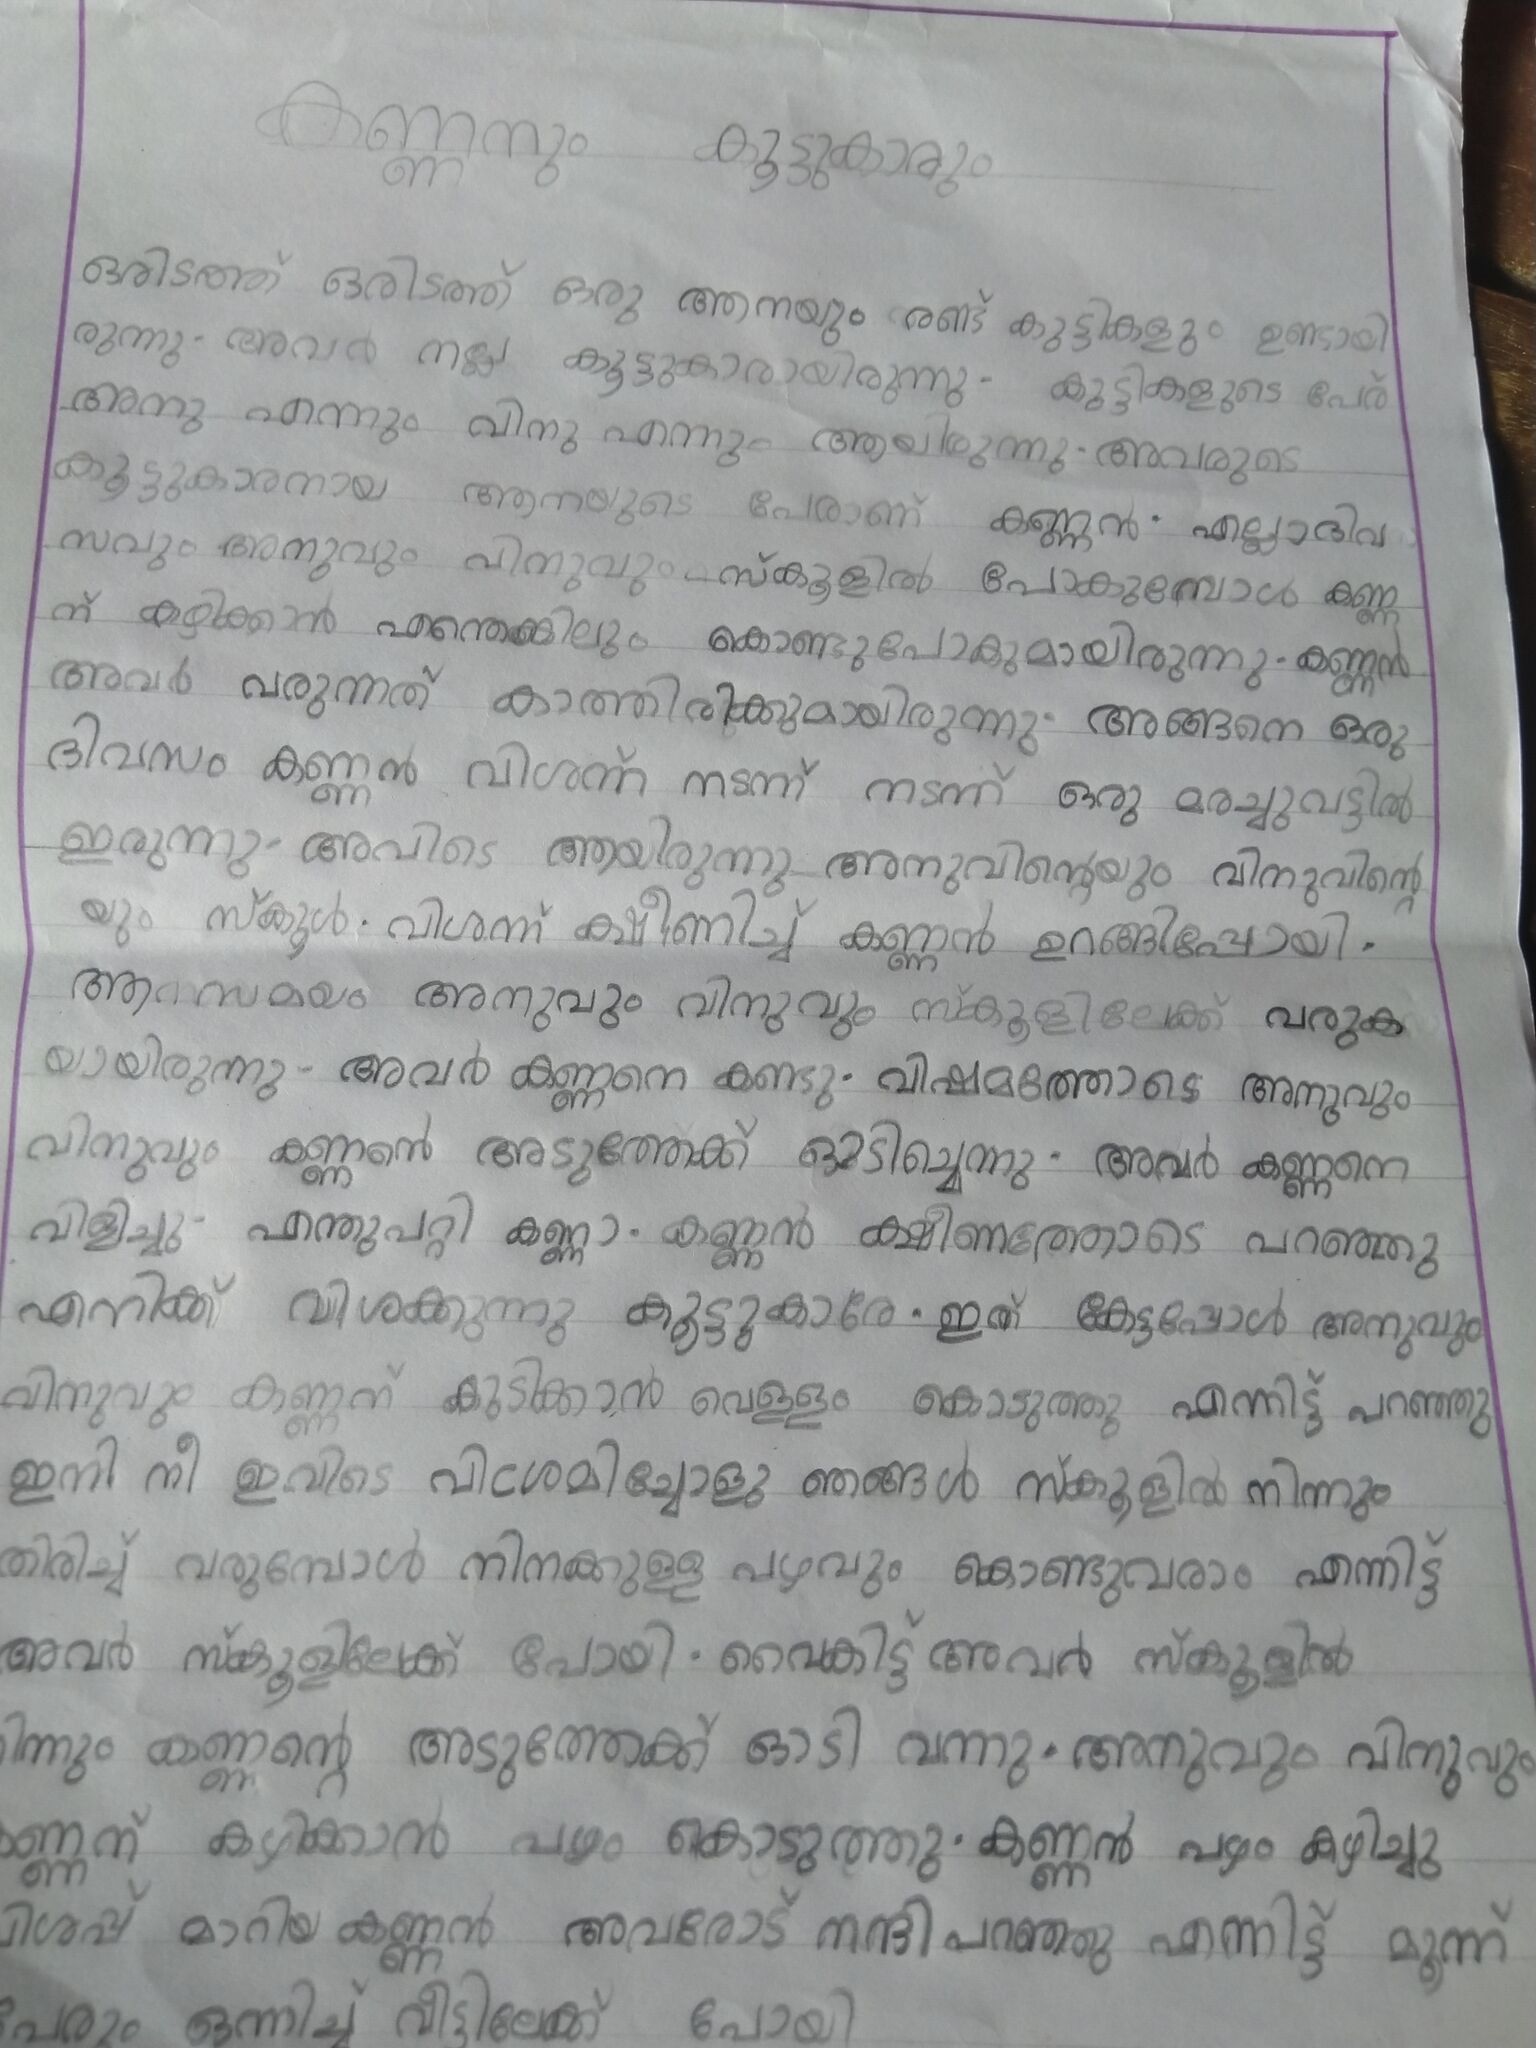 കണ്ണനും കൂട്ടുകാരും
ഒരിടത്ത് ഒരിടത്ത് ഒരു ആനയും രണ്ട് കുട്ടികളും ഉണ്ടായി
രുന്നു. അവർ നല്ല കൂട്ടുകാരായിരുന്നു. കുട്ടികളുടെ പേര്
അനു എന്നും വിനു എന്നും ആയിരുന്നു. അവരുടെ
കൂട്ടുകാരനായ ആനയുടെ പേരാണ് കണ്ണൻ. എല്ലാദിവ
സവും അനുവും വിനുവും സ്കൂളിൽ പോകുമ്പോൾ കണ്ണ
ന് കഴിക്കാൻ എന്തെങ്കിലും കൊണ്ടുപോകുമായിരുന്നു. കണ്ണൻ
അവർ വരുന്നത് കാത്തിരിക്കുമായിരുന്നു. അങ്ങനെ ഒരു
ദിവസം കണ്ണൻ വിശന്ന് നടന്ന് നടന്ന് ഒരു മരച്ചുവട്ടിൽ
ഇരുന്നു. അവിടെ ആയിരുന്നു അനുവിന്റെയും വിനുവിന്റെ
യും സ്കൂൾ. വിശന്ന് ക്ഷീണിച്ച് കണ്ണൻ ഉറങ്ങിപ്പോയി.
ആ സമയം അനുവും വിനുവും സ്കൂളിലേക്ക് വരുക
യായിരുന്നു. അവർ കണ്ണനെ കണ്ടു. വിഷമത്തോടെ അനുവും
വിനുവും കണ്ണന്റെ അടുത്തേക്ക് ഓടിച്ചെന്നു. അവർ കണ്ണനെ
വിളിച്ചു. എന്തുപറ്റി കണ്ണാ. കണ്ണൻ ക്ഷീണത്തോടെ പറഞ്ഞു
എനിക്ക് വിശക്കുന്നു കൂട്ടുകാരേ. ഇത് കേട്ടപ്പോൾ അനുവും
വിനുവും കണ്ണന് കുടിക്കാൻ വെള്ളം കൊടുത്തു എന്നിട്ട് പറഞ്ഞു
ഇനി നീ ഇവിടെ വിശ്രമിച്ചോളു ഞങ്ങൾ സ്കൂളിൽ നിന്നും
തിരിച്ച് വരുമ്പോൾ നിനക്കുള്ള പഴവും കൊണ്ടുവരാം എന്നിട്ട്
അവർ സ്കൂളിലേക്ക് പോയി. വൈകിട്ട് അവർ സ്കൂളിൽ
നിന്നും കണ്ണന്റെ അടുത്തേക്ക് ഓടി വന്നു. അനുവും വിനുവും
കണ്ണന് കഴിക്കാൻ പഴം കൊടുത്തു. കണ്ണൻ പഴം കഴിച്ചു
വിശപ്പ് മാറിയ കണ്ണൻ അവരോട് നന്ദി പറഞ്ഞു എന്നിട്ട് മൂന്ന്
പേരും ഒന്നിച്ച് വീട്ടിലേക്ക് പോയി